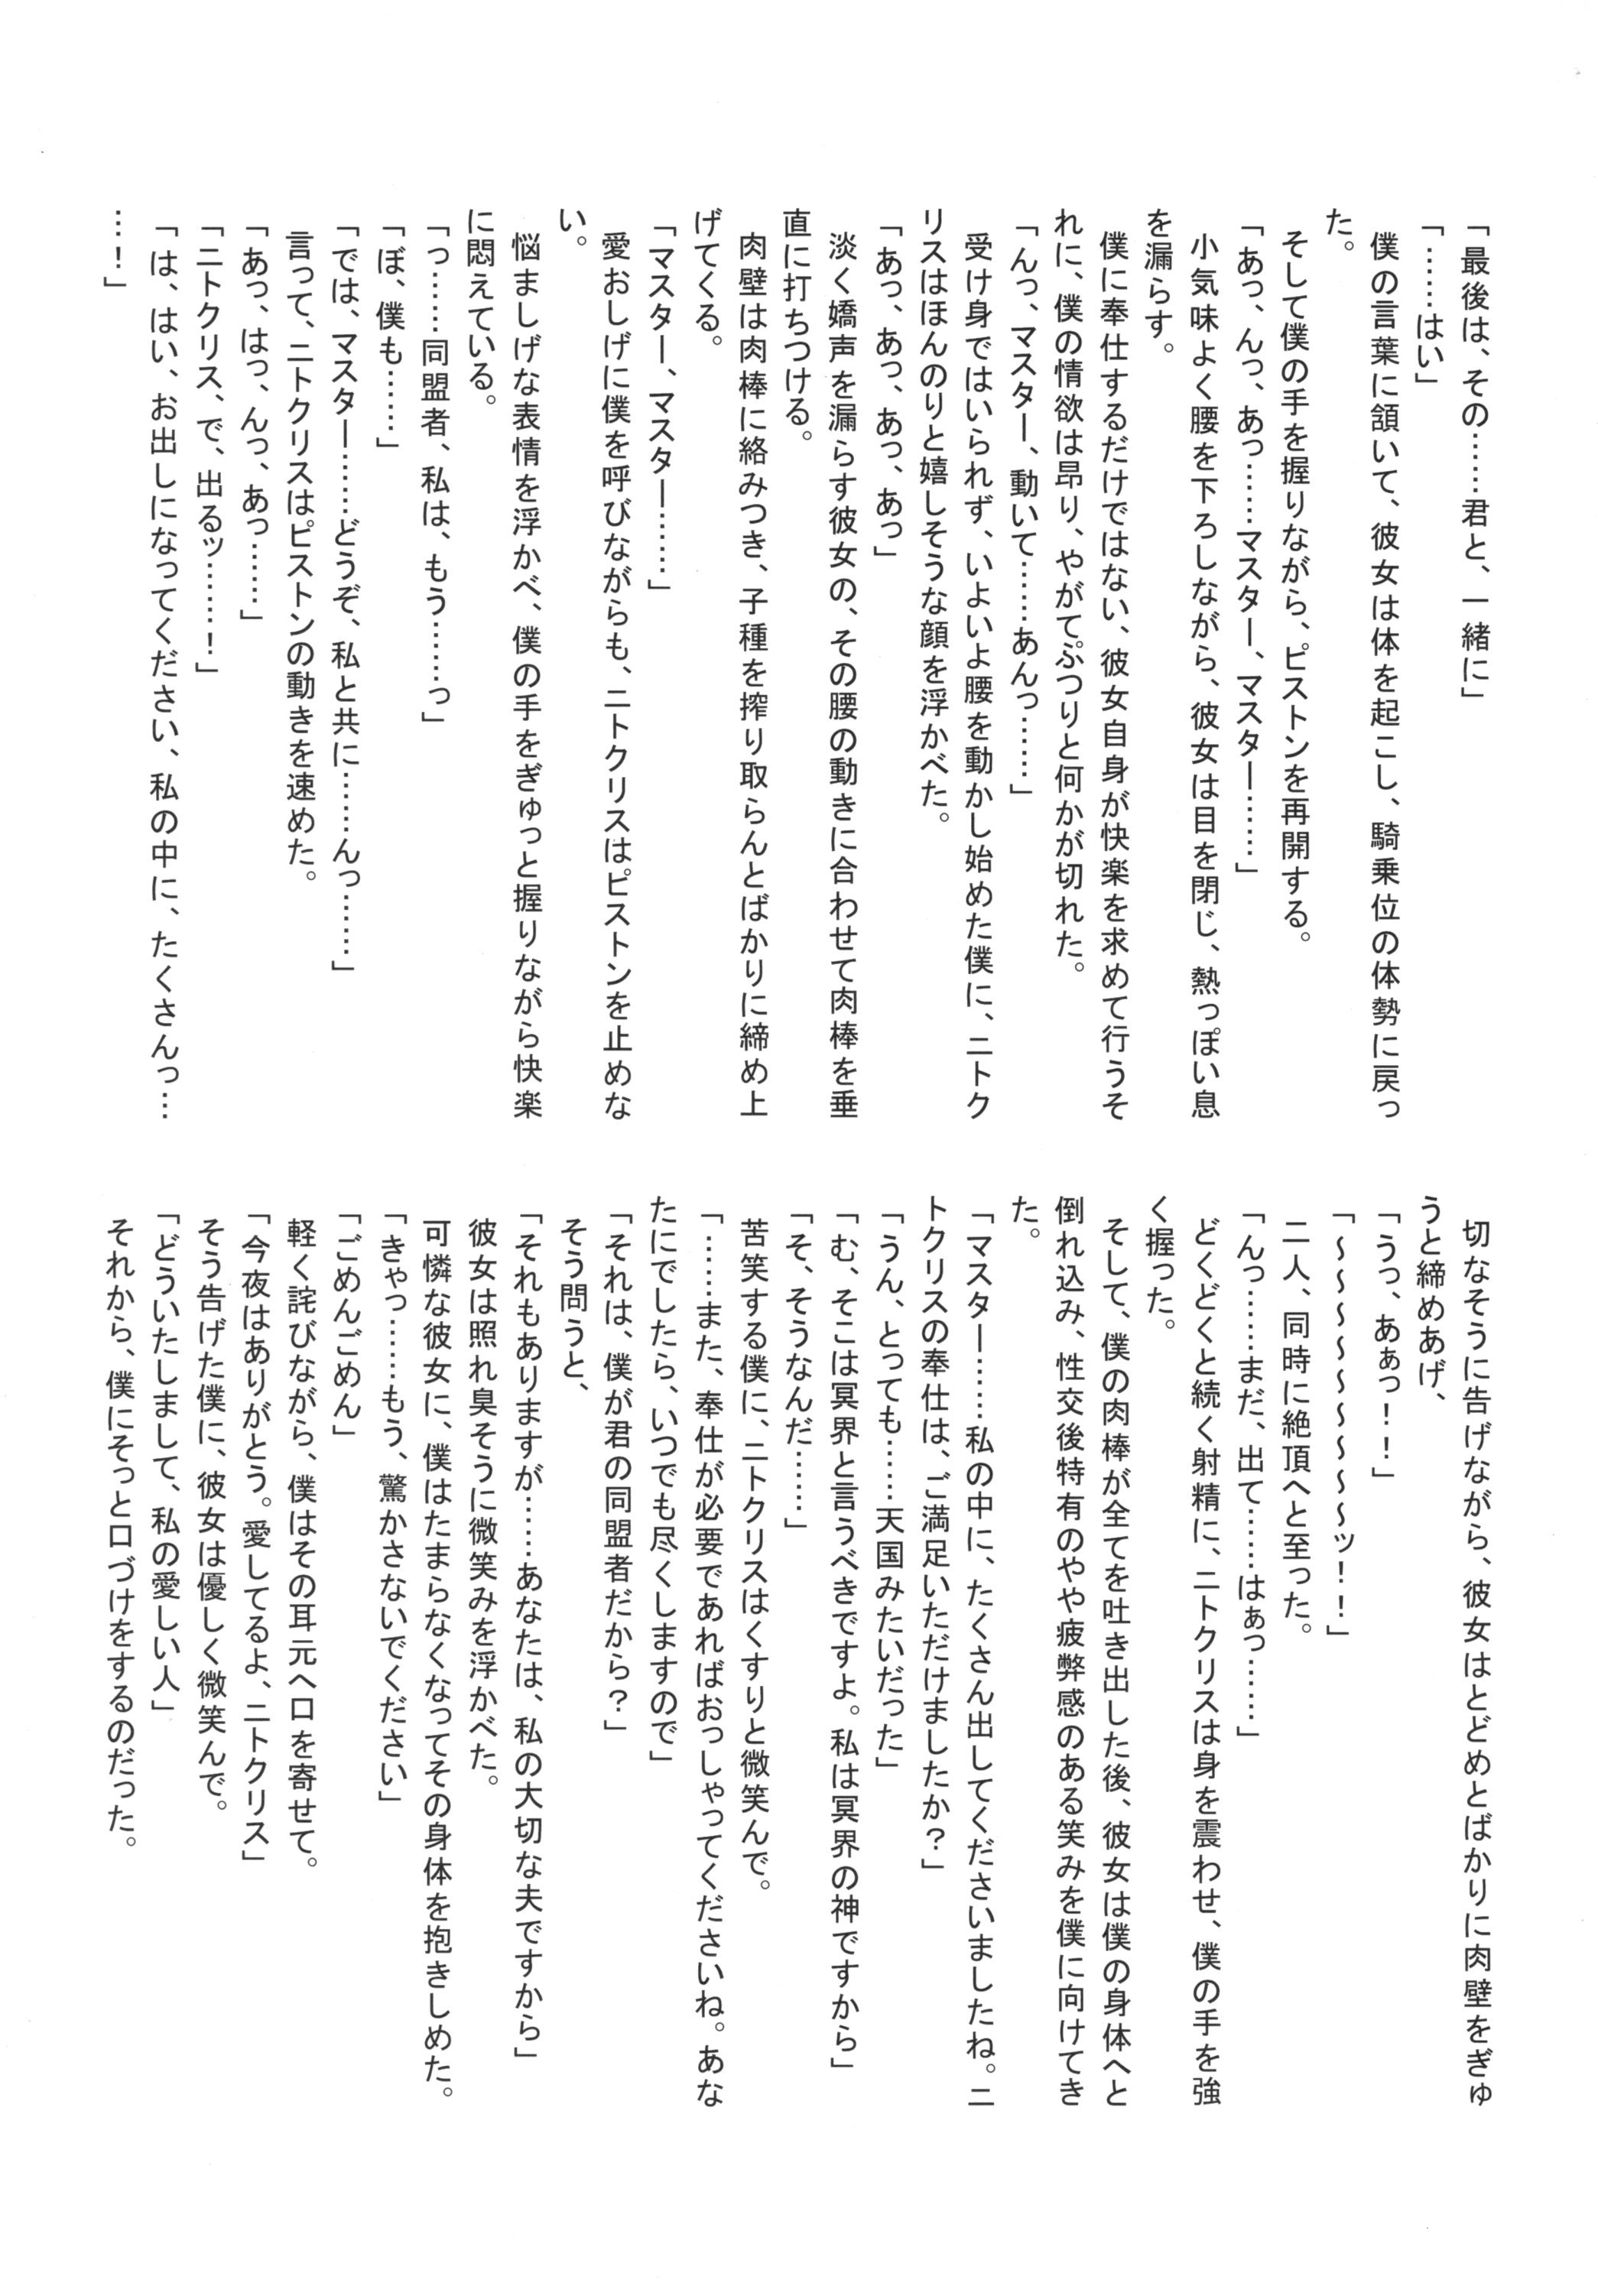 「最後は、その……君と、一緒に」
「……はい」
僕の言葉に頷いて、彼女は体を起こし、騎乗位の体勢に戻っ
た。
そして僕の手を握りながら、ピストンを再開する。
「あっ、んっ、あっ……マスター、マスター……」
小気味よく腰を下ろしながら、彼女は目を閉じ、熱っぽい息
を漏らす。
僕に奉仕するだけではない、彼女自身が快楽を求めて行うそ
れに、僕の情欲は昂り、やがてぷつりと何かが切れた。
「んっ、マスター、動いて……あんっ……」
受け身ではいられず、いよいよ腰を動かし始めた僕に、ニトク
リスはほんのりと嬉しそうな顔を浮かべた。
「あっ、あっ、あっ、あっ」
淡く嬌声を漏らす彼女の、その腰の動きに合わせて肉棒を垂
直に打ちつける。
肉壁は肉棒に絡みつき、子種を搾り取らんとばかりに締め上
げてくる。
「マスター、マスター……」
愛おしげに僕を呼びながらも、ニトクリスはピストンを止めな
い。
悩ましげな表情を浮かべ、僕の手をぎゅっと握りながら快楽
に悶えている。
「っ……同盟者、私は、もう……っ」
「ぼ、僕も……」
「では、マスター……どうぞ、私と共に……んっ……」
言って、ニトクリスはピストンの動きを速めた。
「あっ、はっ、んっ、あっ……」
「ニトクリス、で、出るッ……！」
「は、はい、お出しになってください、私の中に、たくさんっ…
…！」
切なそうに告げながら、彼女はとどめとばかりに肉壁をぎゅ
うと締めあげ、
「うっ、あぁっ！！」
「～～～～～～～～ッ！！」
二人、同時に絶頂へと至った。
「んっ……まだ、出て……はぁっ……」
どくどくと続く射精に、ニトクリスは身を震わせ、僕の手を強
く握った。
そして、僕の肉棒が全てを吐き出した後、彼女は僕の身体へと
倒れ込み、性交後特有のやや疲弊感のある笑みを僕に向けてき
た。
「マスター……私の中に、たくさん出してくださいましたね。ニ
トクリスの奉仕は、ご満足いただけましたか？」
「うん、とっても……天国みたいだった」
「む、そこは冥界と言うべきですよ。私は冥界の神ですから」
「そ、そうなんだ……」
苦笑する僕に、ニトクリスはくすりと微笑んで。
「……また、奉仕が必要であればおっしゃってくださいね。あな
たにでしたら、いつでも尽くしますので」
「それは、僕が君の同盟者だから？」
そう問うと、
「それもありますが……あなたは、私の大切な夫ですから」
彼女は照れ臭そうに微笑みを浮かべた。
可憐な彼女に、僕はたまらなくなってその身体を抱きしめた。
「きゃっ……もう、驚かさないでください」
「ごめんごめん」
軽く詫びながら、僕はその耳元へ口を寄せて。
「今夜はありがとう。愛してるよ、ニトクリス」
そう告げた僕に、彼女は優しく微笑んで。
「どういたしまして、私の愛しい人」
それから、僕にそっと口づけをするのだった。